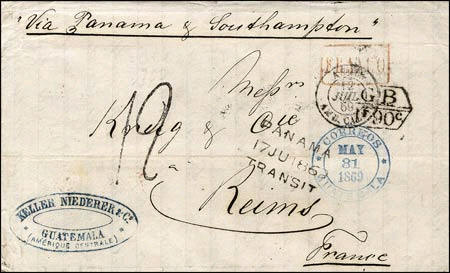 "Via Panama & Southampton"
FRANCO
Messrs
GB
90c
Krug & Cie
PANAMA
17 JU 1869
TRANSIT
CORREOS
MAY
31
1869
GUATEMALA
12
à
Reims
KELLER NIEDERER & Co.
GUATEMALA
(AMÉRIQUE CENTRALE)
France